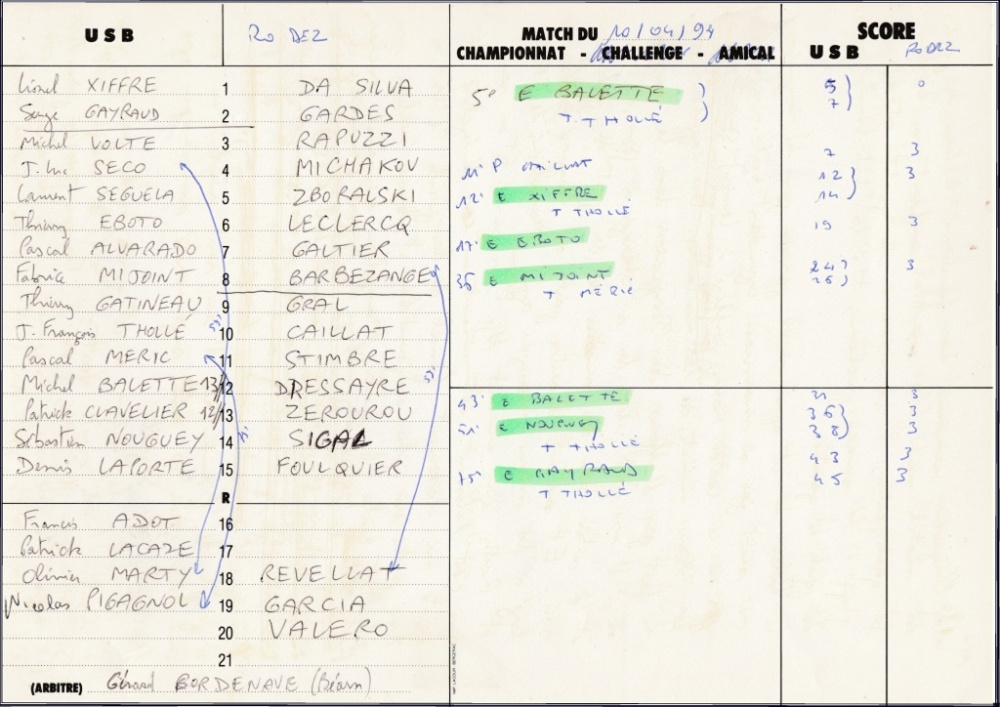 USB RODEZ MATCH DU 10/04/94 SCORE
CHAMPIONNAT - CHALLENGE - AMICAL USB RODEZ
Lionel XIFFRE 1 DA SILVA
Serge GAYRAUD 2 GARDES
Michel VOLTE 3 RAPUZZI
J. Luc SECO 4 MICHAKOV
Laurent SEGUELA 5 ZBORALSKI
Thierry EBOTO 6 LECLERCQ
Pascal ALVARADO 7 GALTIER
Fabrice MIJOINT 8 BARBEZANGE
Thierry GATINEAU 9 GRAL
J. François THOLLÉ 10 CAILLAT
Pascal MERIC 11 STIMBRE
Michel BALETTE 13/12 DRESSAYRE
Patrick CLAVELIER 12/13 ZEROUROU
Sébastien NOUGUEY 14 SIGAL
Denis LAPORTE 15 FOULQUIER
R
Francis ADOT 16
Patrick LACAZE 17
Olivier MARTY 18 REVELLAT
Nicolas PIGAGNOL 19 GARCIA
20 VALERO
21
(ARBITRE) Gérard BORDENAVE (Béarn)
5' E BALETTE 5 0
T THOLLÉ 7
7 3
11' P CAILLAT
12' E XIFFRE 12 3
T THOLLÉ 14
17' E EBOTO 19 3
36 E MIJOINT 24 3
T MÉRIC 26
43' E BALETTE 31 3
51' E NOUGUEY 36 3
T THOLLÉ 38 3
75' E GAYRAUD 43 3
T THOLLÉ 45 3